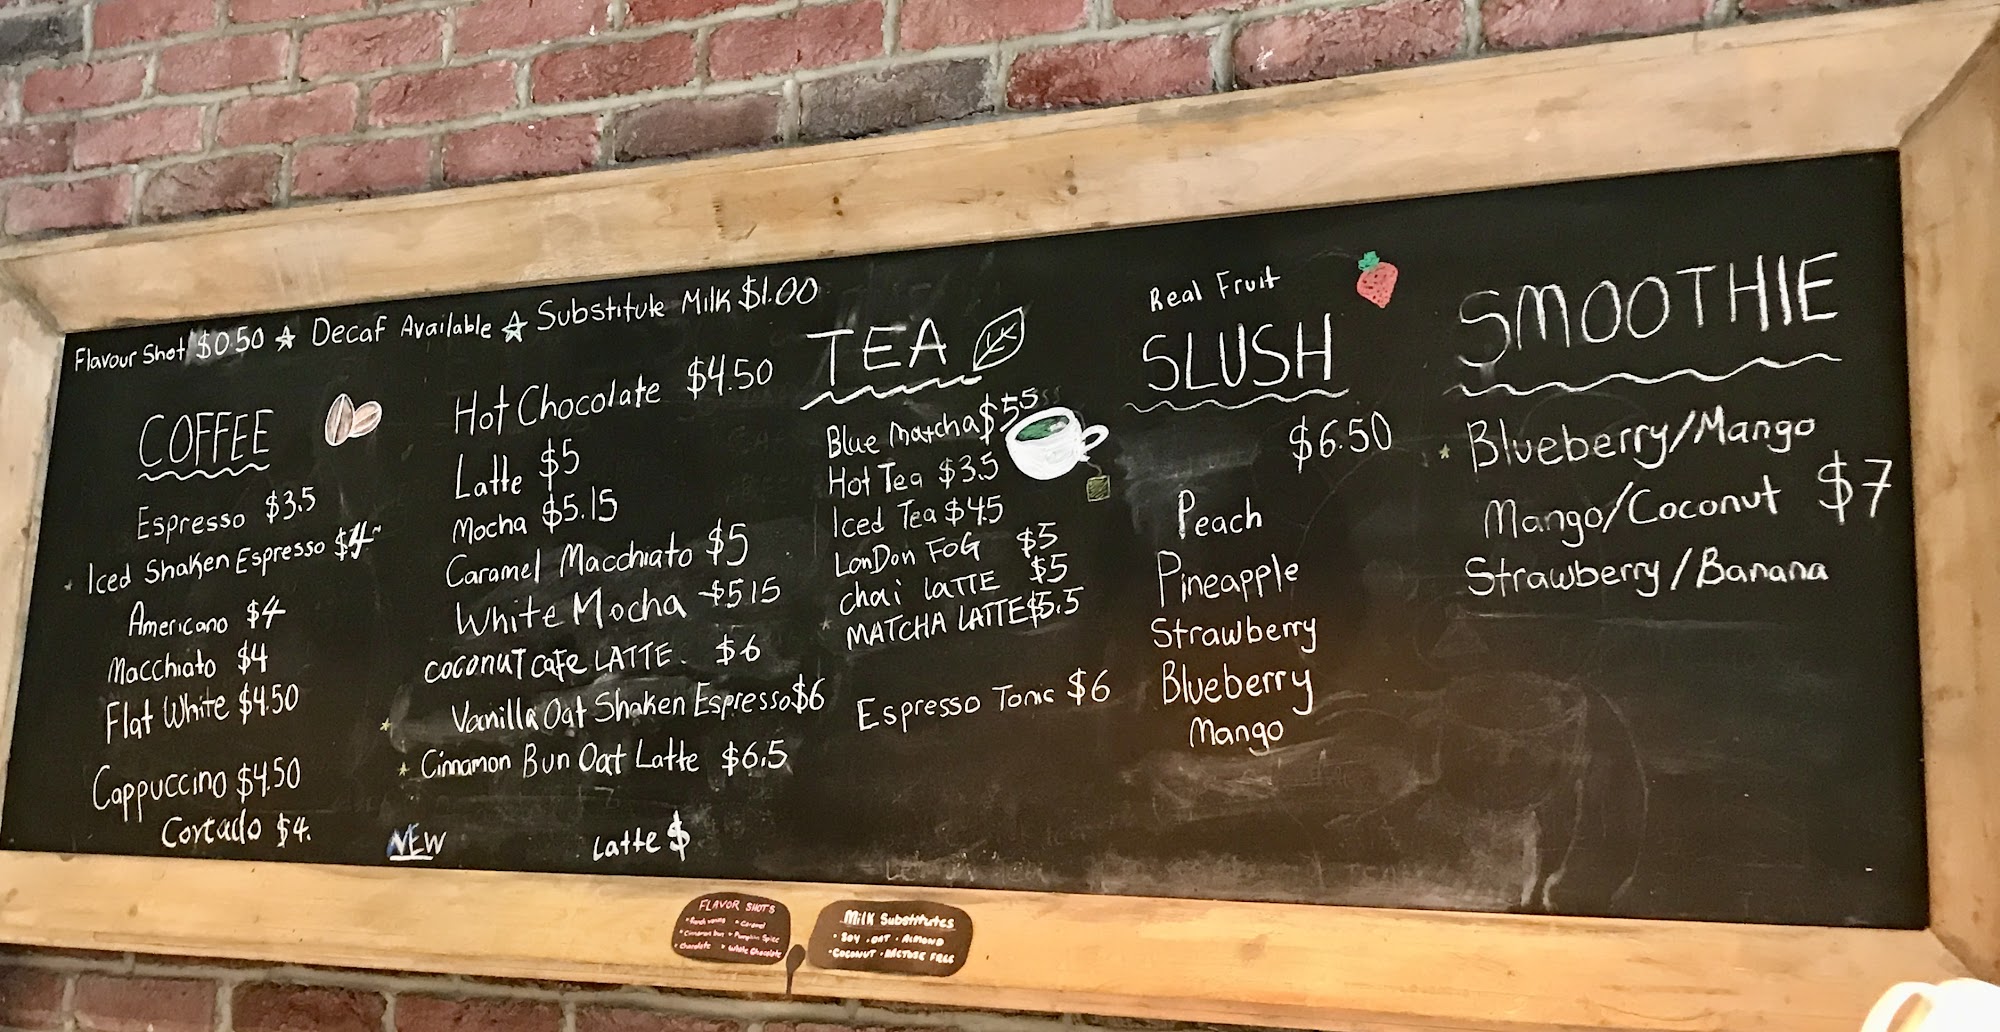 Flavour Shot $0.50 ☆ Decaf Available ☆ Substitute Milk $1.00
COFFEE
Espresso $3.5
Iced Shaken Espresso $4
Americano $4
Macchiato $4
Flat White $4.50
Cappuccino $4.50
Cortado $4.
Hot Chocolate $4.50
Latte $5
Mocha $5.15
Caramel Macchiato $5
White Mocha $515
coconut cafe LATTE. $6
Vanilla Oat Shaken Espresso $6
Cinnamon Bun Oat Latte $6.5
NEW
Latte $
TEA
Blue Matcha $55
Hot Tea $3.5
Iced Tea $45
LonDon FoG $5
chai LATTE $5
MATCHA LATTE $5.5
Espresso Tonic $6
Real Fruit
SLUSH
$6.50
Peach
Pineapple
Strawberry
Blueberry
Mango
SMOOTHIE
Blueberry/Mango
Mango/Coconut $7
Strawberry/Banana
FLAVOR SHOTS
• French vanilla • Caramel
• Cinnamon bun • Pumpkin Spice
• Chocolate • White Chocolate
Milk Substitutes
• SOY • OAT • ALMOND
• COCONUT • LACTOSE FREE